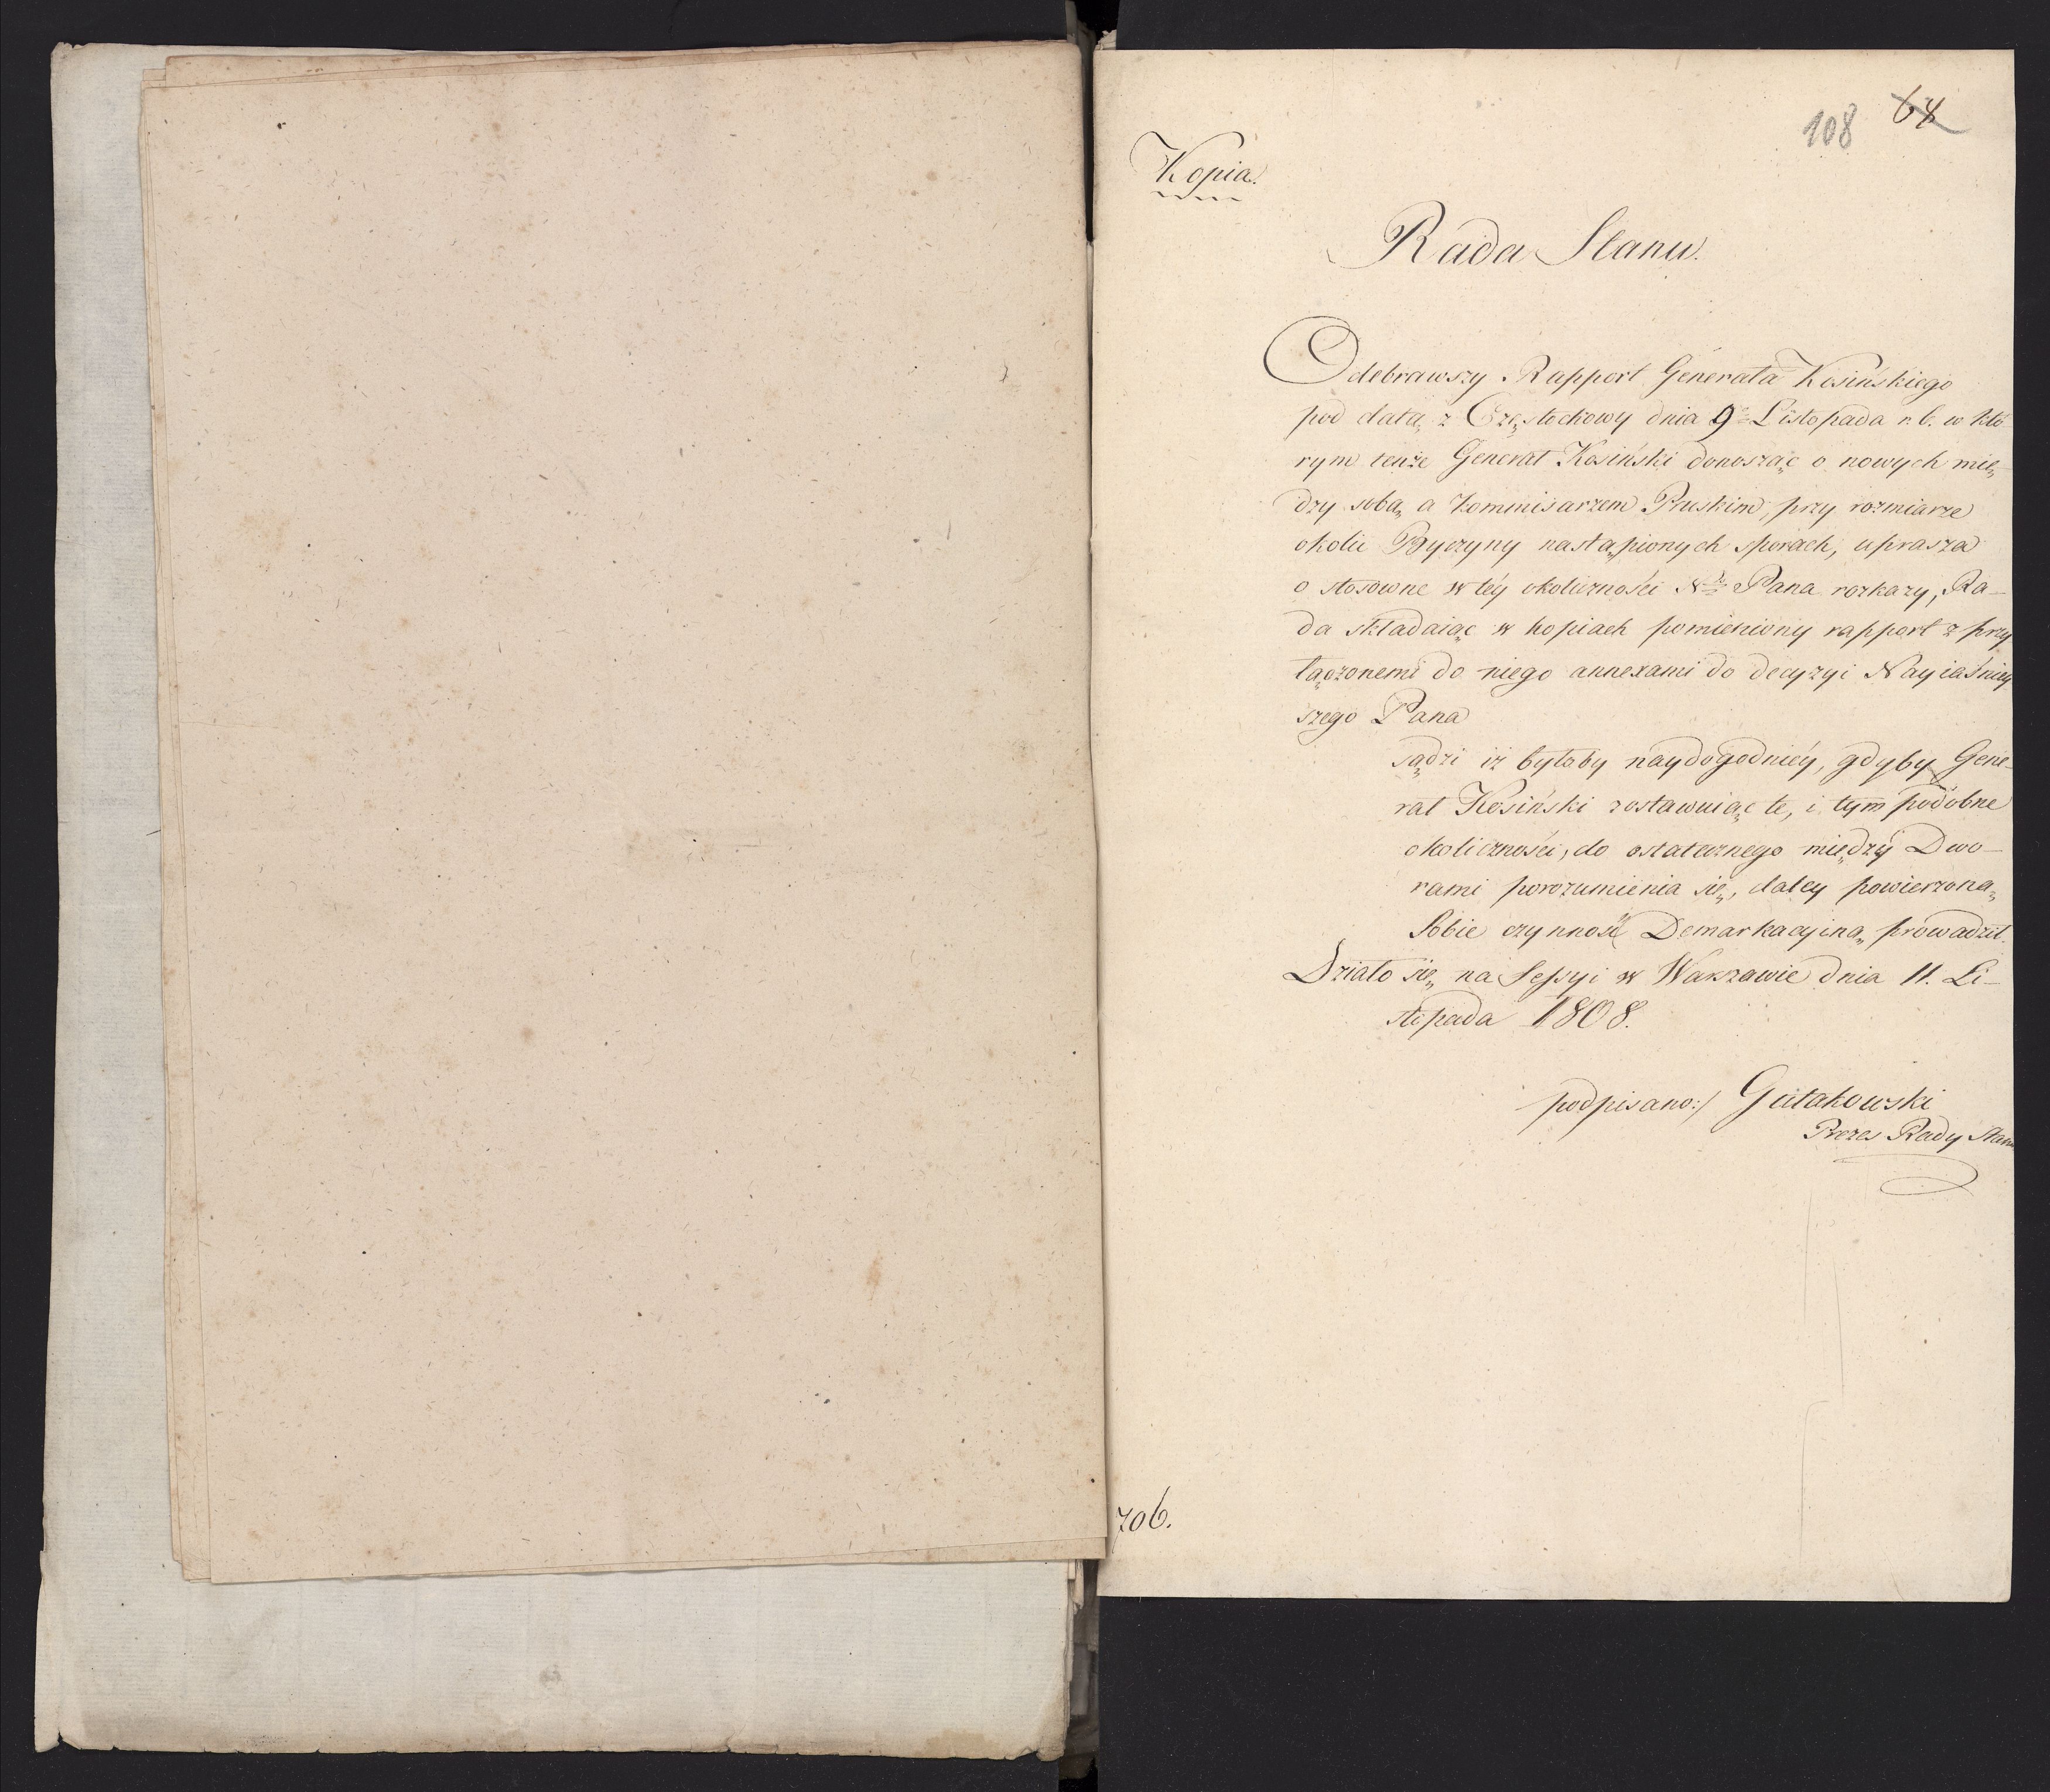 108 68
Kopia.
Rada Stanu.
Odebrawszy Rapport Generała Kosińskiego
pod datą z Częstochowy dnia 9 Listopada r. b. w któ
rym tenże Generał Kosiński donosząc o nowych mię-
dzy sobą a Kommisarzem Pruskim, przy rozmiarze
okolic Byczyny nastąpionych sporach, uprasza
o stosowne w téy okoliczności Ngo Pana rozkazy, Ra-
da składaiąc w kopiach pomieniony rapport z przy
łączonemi do niego annexami do decyzyi Nayiaśniey
szego Pana
sądzi iż byłoby naydogodniéy, gdyby Gene-
rał Kosiński zostawuiąc te, i tym podobne
okoliczności, do ostatecznego między Dwo-
rami porozumienia się, daley powierzoną
Sobie czynność Demarkacyiną prowadził.
Działo się na Sessyi w Warszawie dnia 11. Li-
stopada 1808.
podpisano:/ Gutakowski
Prezes Rady Stanu
706.